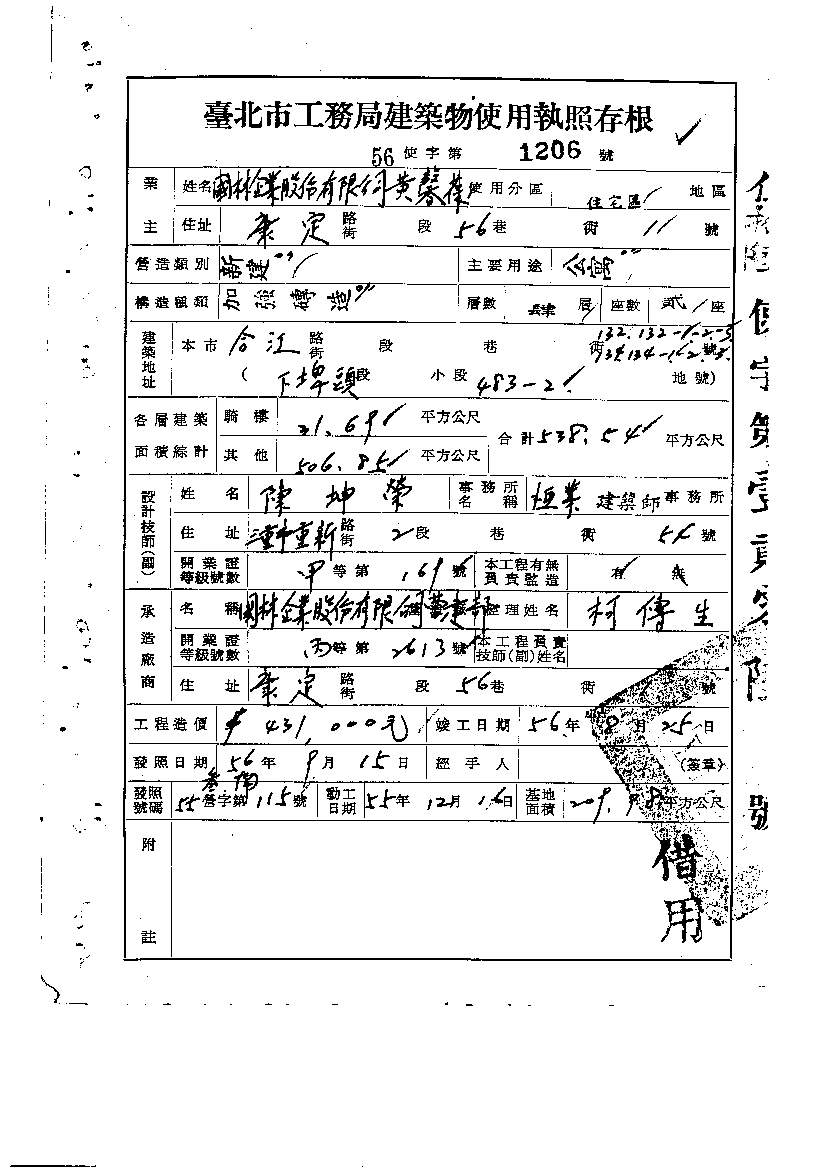 臺北市工務局建築物使用執照存根
56 使字第 1206 號
業主 姓名 國林企業股份有限公司黃馨葆 使用分區 住宅區 地區
住址 康定 路街 段 56 巷 衖 11 號
營造類別 新建 主要用途 公寓
構造種類 加強磚造 層數 肆 層 座數 貳 座
建築地址 本市 合江 路街 段 巷 衖 132.132-1.-2-3. 134.134-1.-2.-3. 號
( 下埤頭 段 小段 483-2 地號)
各層建築面積綜計 騎樓 31.69 平方公尺 合計 538.54 平方公尺
其他 506.85 平方公尺
設計技師(副) 姓名 陳坤榮 事務所名稱 恒業 建築師 事務所
住址 三重市重新 路街 2 段 巷 衖 54 號
開業證等級號數 甲 等第 1696 號 本工程有無負責監造 有 無
承造廠商 名稱 國林企業股份有限公司營造部 經理姓名 柯傳生
開業證等級號數 丙 等第 2613 號 本工程負責技師(副)姓名
住址 康定 路街 段 56 巷 衖 號
工程造價 431,000元 竣工日期 56 年 8 月 25 日
發照日期 56 年 9 月 15 日 經手人 (簽章)
發照號碼 55 營字第 115 號 動工日期 55 年 12 月 16 日 基地面積 209.98 平方公尺
附註
借用
使字第壹貳零陸 號